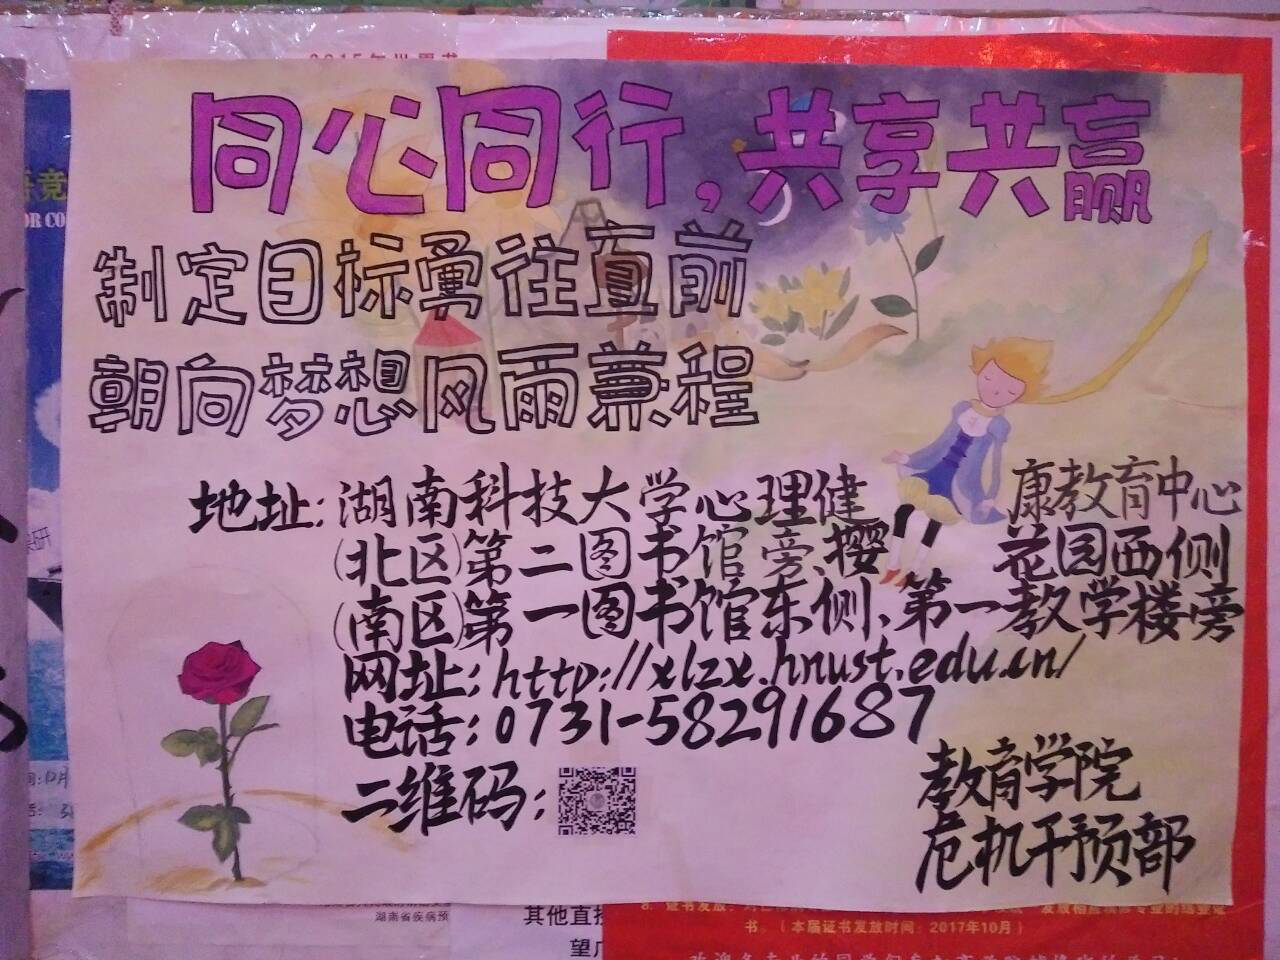 同心同行,共享共赢
制定目标勇往直前
朝向梦想风雨兼程
地址:湖南科技大学心理健康教育中心
(北区)第二图书馆旁、樱花园西侧
(南区)第一图书馆东侧、第一教学楼旁
网址:http://xlzx.hnust.edu.cn/
电话:0731-58291687
二维码:
教育学院
危机干预部
湖南省疾病预
其他直接
望广
书。(本届证书发放时间:2017年10月)